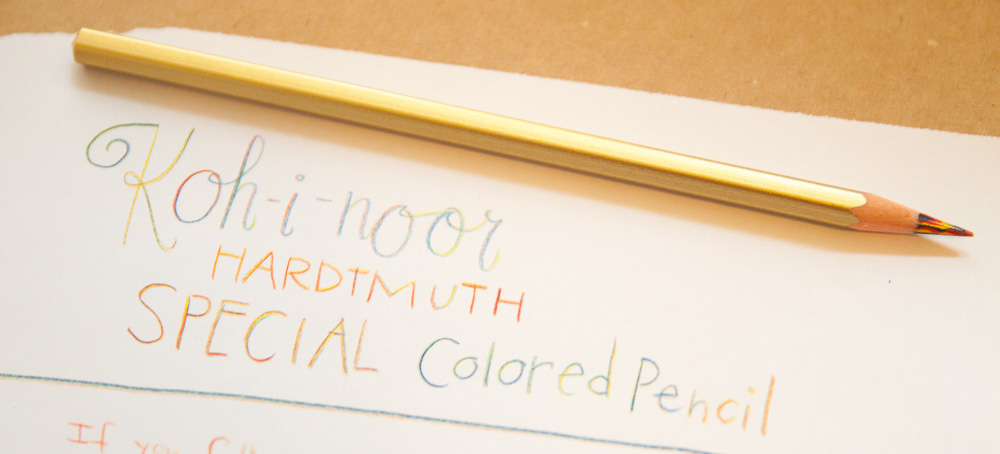 Koh-i-noor
HARDTMUTH
SPECIAL Colored Pencil
If you